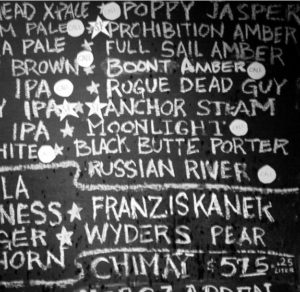 EAD X-PALE POPPY JASPER
M PALE PROHIBITION AMBER
A PALE FULL SAIL AMBER
BROWN BOONT AMBER
IPA ROGUE DEAD GUY
Y IPA ANCHOR STEAM
IPA MOONLIGHT
HITE BLACK BUTTE PORTER
RUSSIAN RIVER
LA
NESS FRANZISKANER
GER WYDERS PEAR
HORN CHIMAY $5.75 .25 LITER